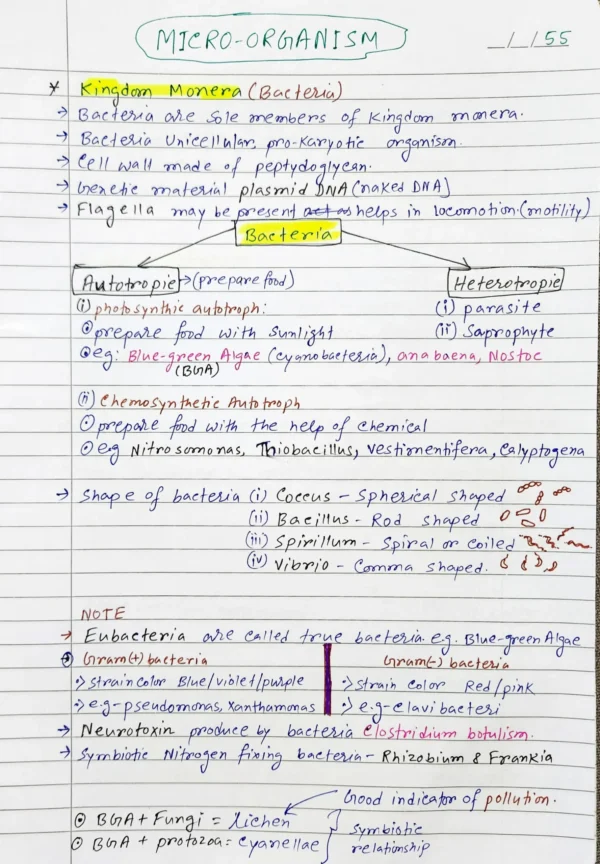 MICRO-ORGANISM
_/_/55
* Kingdom Monera (Bacteria)
→ Bacteria are sole members of Kingdom monera.
→ Bacteria Unicellular, pro-karyotic organism.
→ Cell wall made of peptydoglycan.
→ Genetic material plasmid DNA (naked DNA]
→ Flagella may be present act as helps in locomotion.(motility)
Bacteria
Autotropie → (prepare food)
Heterotropie
(i) photosynthic autotroph:
(i) parasite
⊙ prepare food with sunlight
(ii) Saprophyte
⊙ eg: Blue-green Algae (cyanobacteria), anabaena, Nostoc
(BGA)
(ii) Chemosynthetic Autotroph
⊙ prepare food with the help of chemical
⊙ e.g Nitrosomonas, Thiobacillus, Vestimentifera, Calyptogena
→ Shape of bacteria (i) Coccus - Spherical shaped
(ii) Bacillus - Rod shaped
(iii) Spirillum - Spiral or coiled
(iv) Vibrio - Comma shaped.
NOTE
→ Eubacteria are called true bacteria. e.g. Blue-green Algae
⊙ Gram(+) bacteria
Gram(-) bacteria
:> strain color Blue/violet/purple
:> strain color Red/pink
:> e.g-pseudomonas, Xanthamonas
:> e.g-clavi bacteri
→ Neurotoxin produce by bacteria Clostridium botulism.
→ Symbiotic Nitrogen fixing bacteria - Rhizobium & Frankia
Good indicator of pollution.
⊙ BGA + Fungi = Lichen
⊙ BGA + protozoa = Cyanellae
symbiotic
relationship